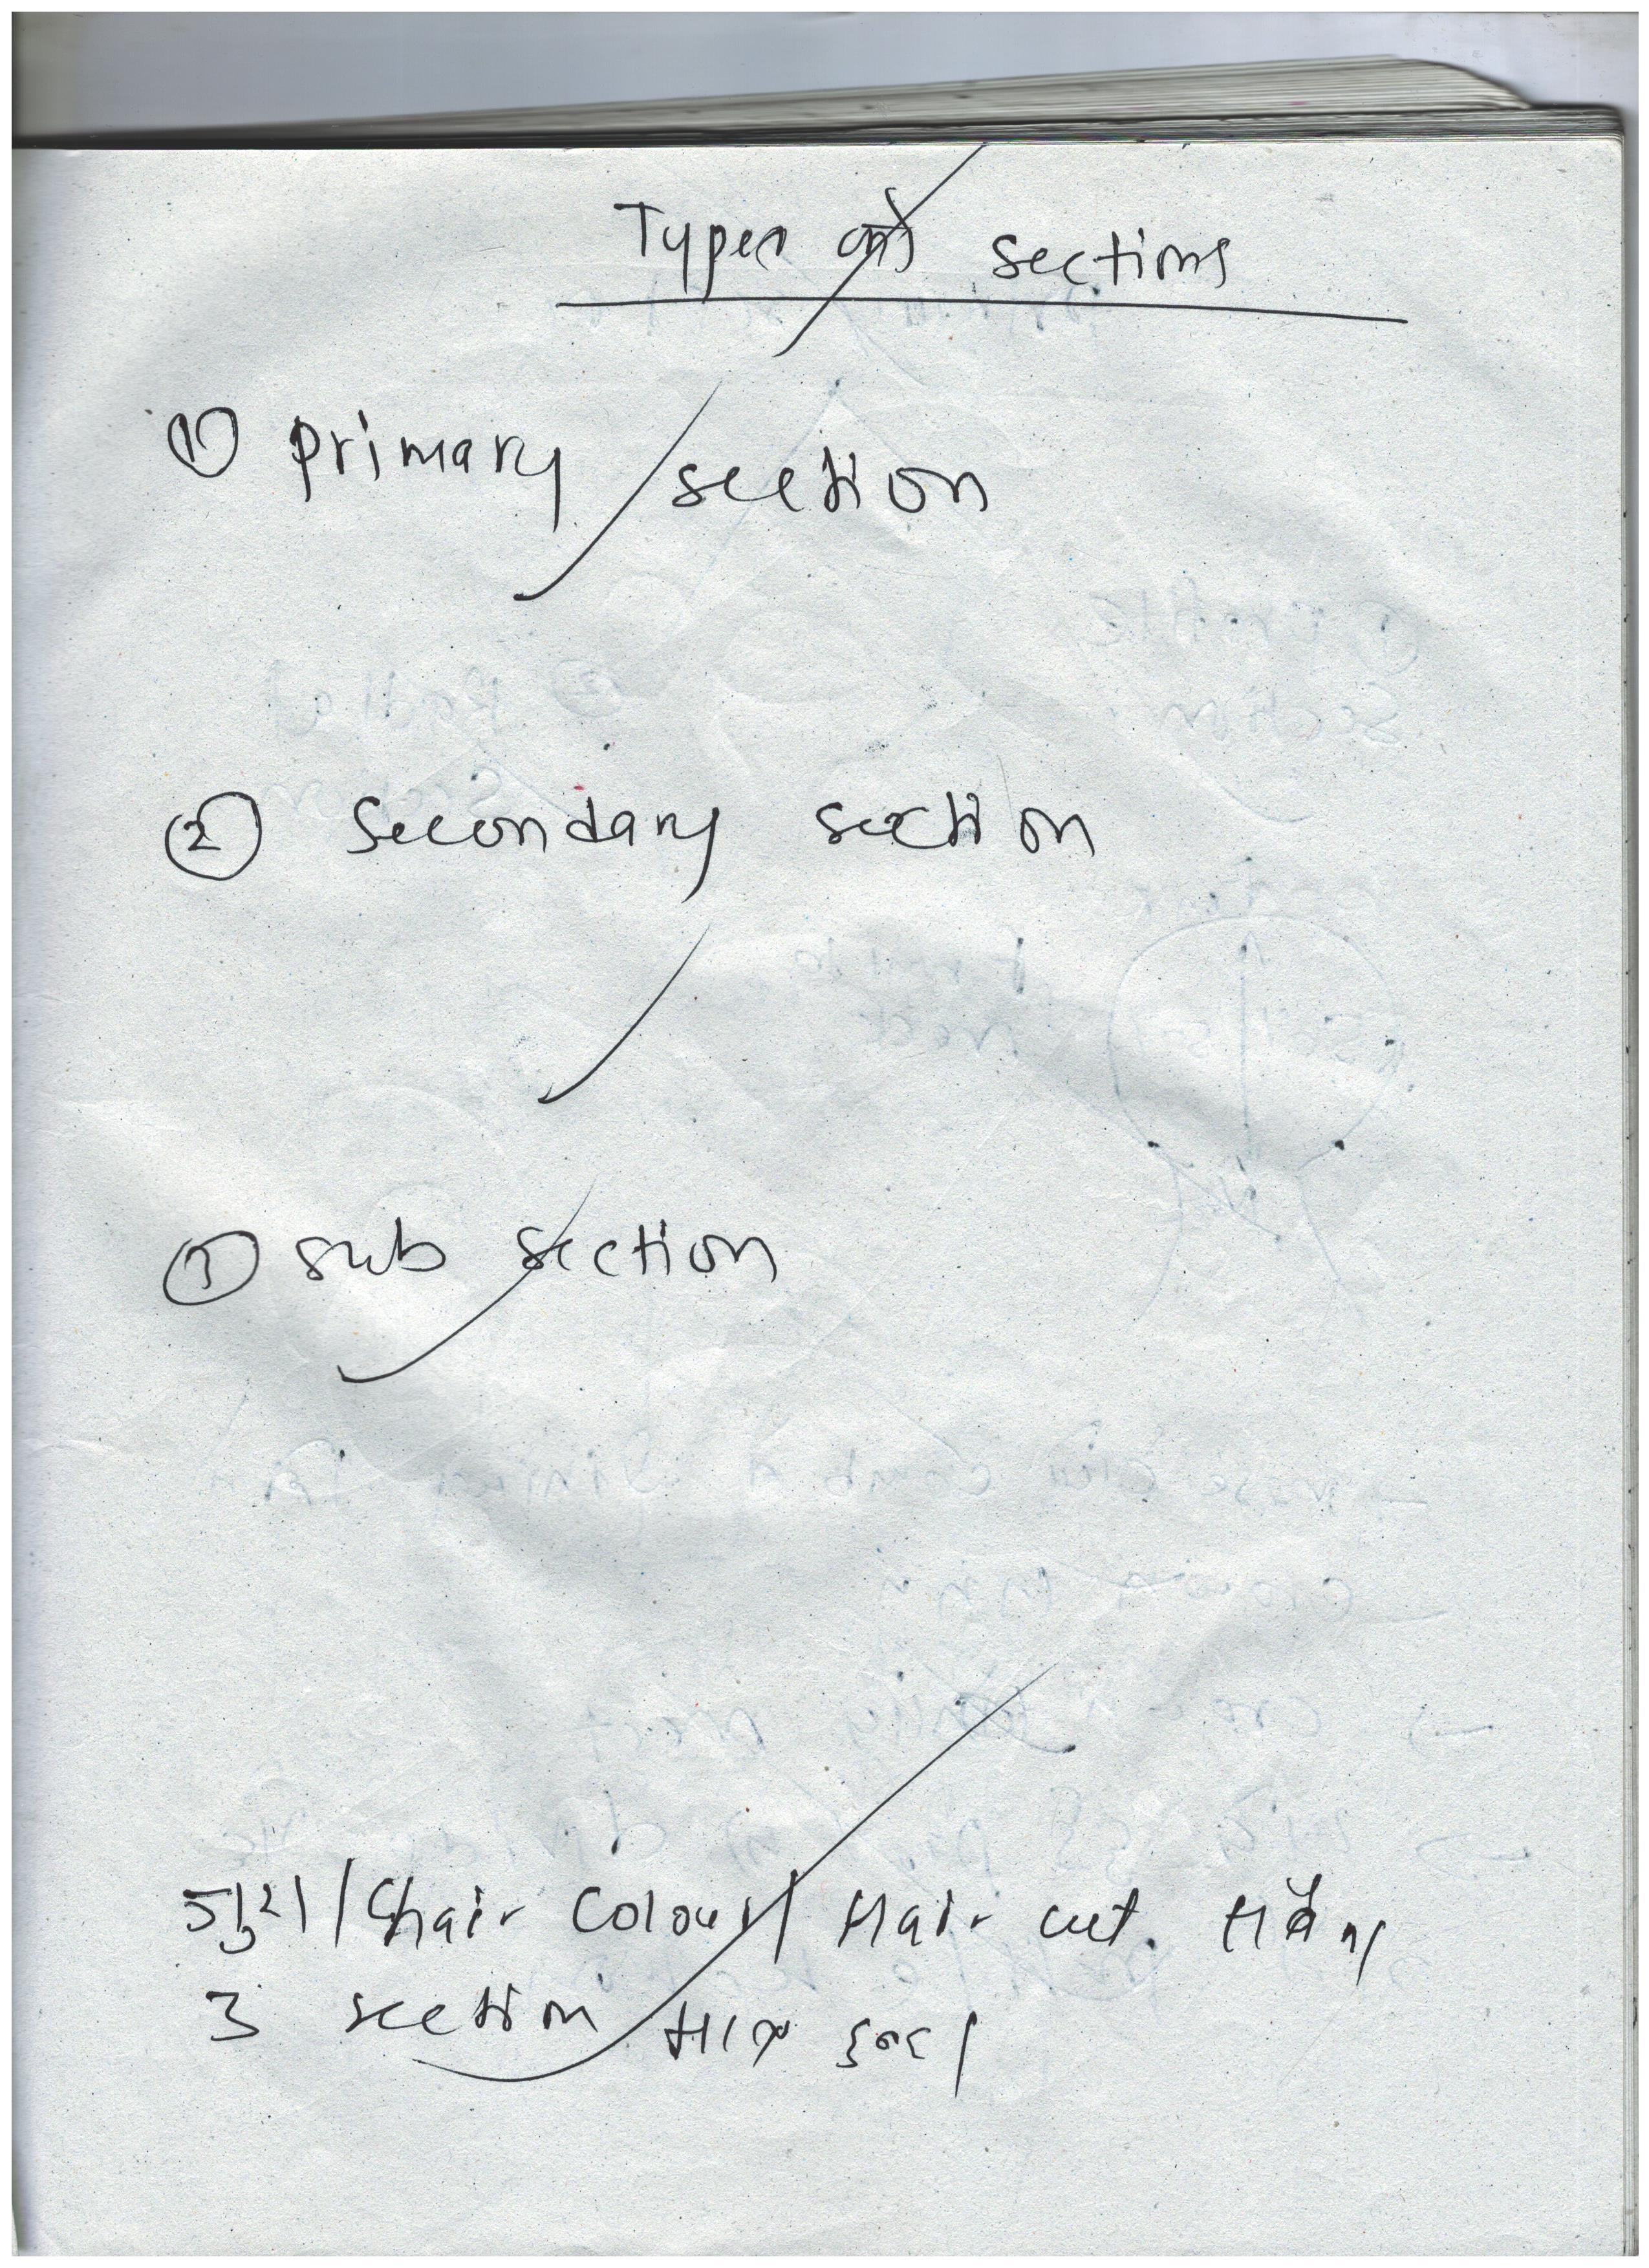 Types of sections
① primary section
② Secondary section
③ sub section
hair colour / Hair cut.
3 section